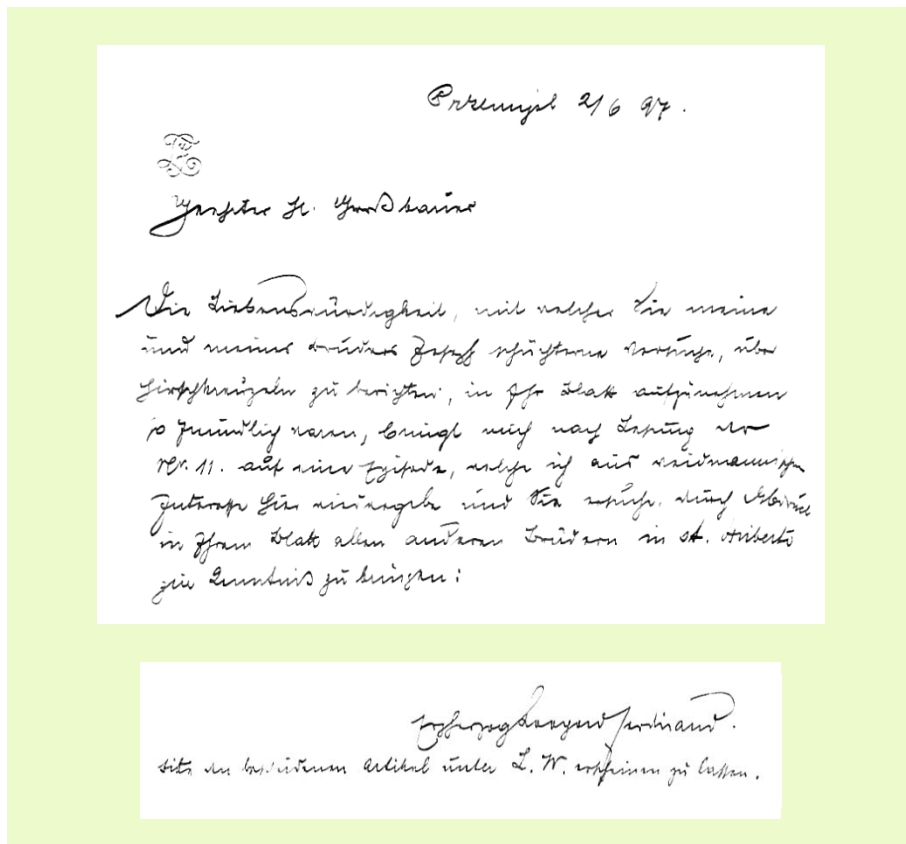 Przemysl 2/6 97.
Geehrter H. Großbauer
Die Liebenswürdigkeit, mit welcher Sie meine
und meines Bruders Josefs schüchterne Versuche, über
Hirschkreuzeln zu berichten, in Ihr Blatt aufzunehmen
so freundlich waren, bringt mich nach Lesung der
Nr. 11. auf eine Episode, welche ich aus weidmannischem
Interesse hier wiedergebe und Sie ersuche, durch Abdruck
in Ihrem Blatt allen anderen Brüdern in St. Huberto
zur Kenntniß zu bringen:
Erzherzog Leopold Ferdinand.
Bitte den bescheidenen Artikel unter L. W. erscheinen zu lassen.